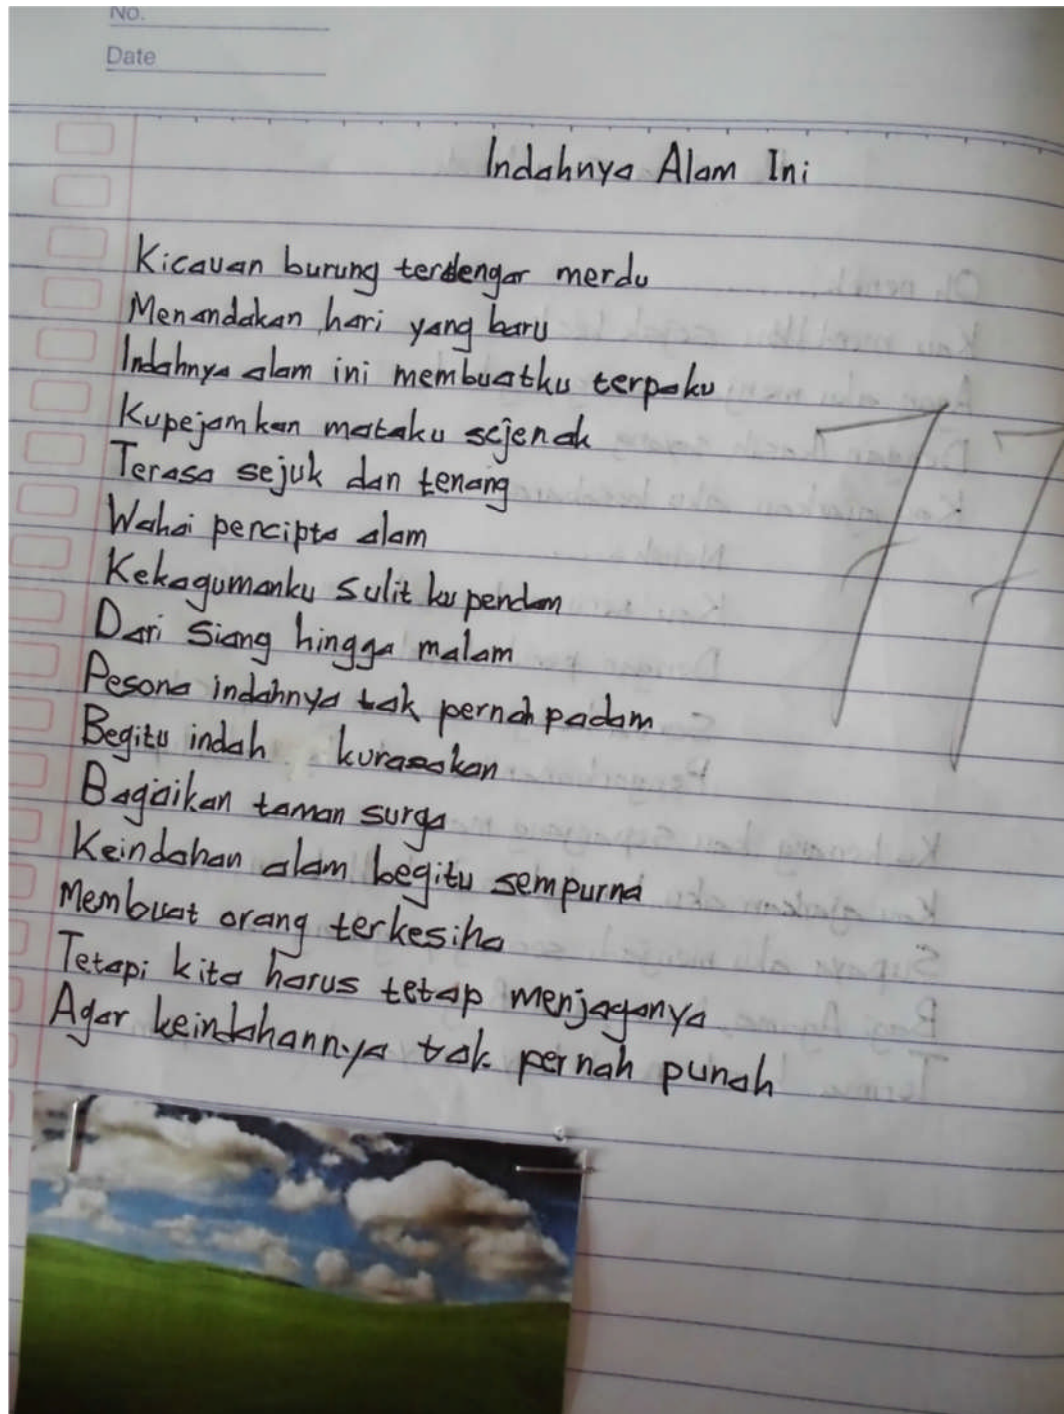 No.
Date
Indahnya Alam Ini
Kicauan burung terdengar merdu
Menandakan hari yang baru
Indahnya alam ini membuatku terpaku
Kupejamkan mataku sejenak
Terasa sejuk dan tenang
Wahai pencipta alam
Kekagumanku sulit ku pendam
Dari siang hingga malam
Pesona indahnya tak pernah padam
Begitu indah kurasakan
Bagaikan taman surga
Keindahan alam begitu sempurna
Membuat orang terkesiha
Tetapi kita harus tetap menjaganya
Agar keindahannya tak pernah punah
77